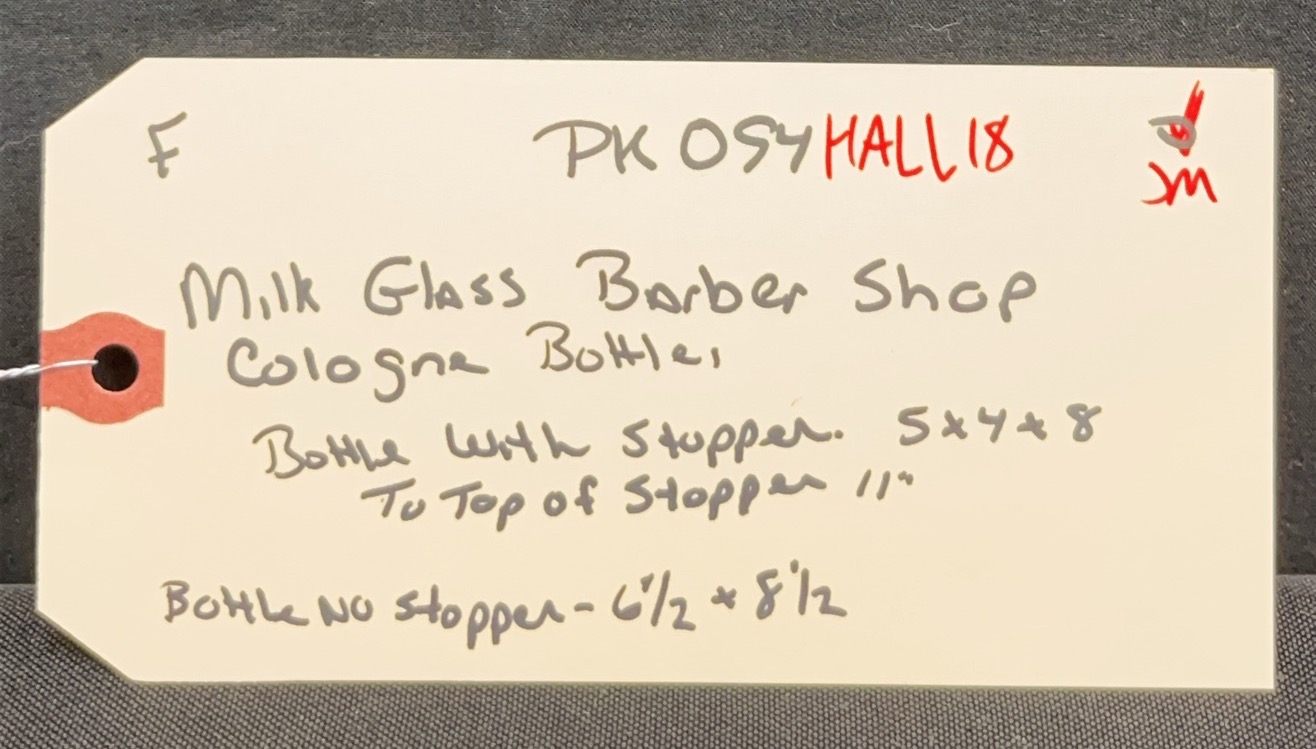 F PK 054 HALL 18
JM
Milk Glass Barber Shop
Cologne Bottle,
Bottle with Stopper. 5x4x8
To Top of Stopper 11"
Bottle No Stopper - 6 1/2 x 8 1/2